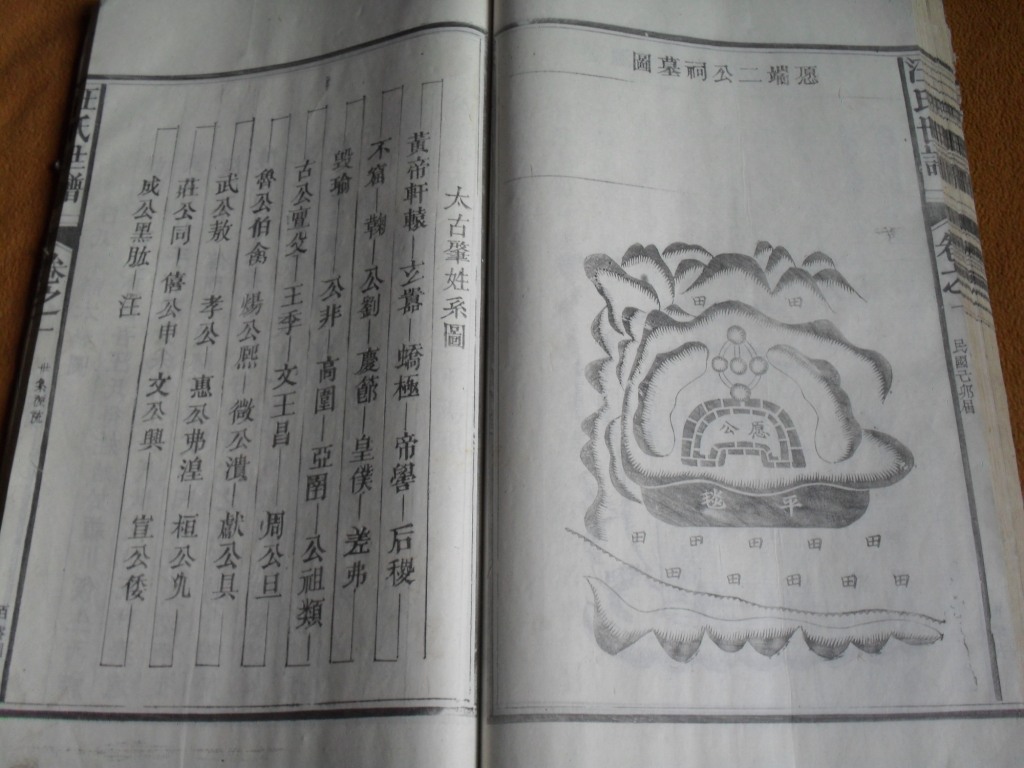 愿二公祠墓圖
田 田
愿公
平毯
田 田 田 田 田
田 田 田 田 田
汪氏世譜 卷之一 民國己卯屆
太古肇姓系圖
黃帝軒轅—玄囂—蟜極—帝嚳—后稷—
不窋—鞠—公劉—慶節—皇僕—差弗
毀瑜—公非—高圉—亞圉—公祖類
古公亶父—王季—文王昌—周公旦
魯公伯禽—煬公熙—微公濆—獻公具
武公敖—孝公—惠公弗湟—桓公允
莊公同—僖公申—文公興—宣公倭
成公黑肱—汪
汪氏世譜 卷之一